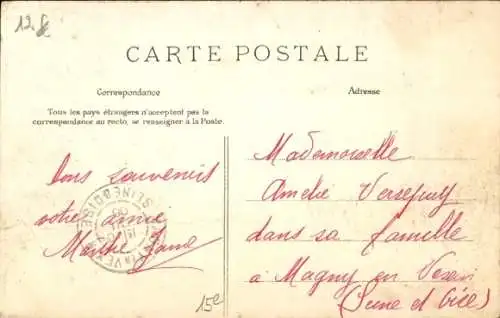 12 f
CARTE POSTALE
Correspondance
Adresse
Tous les pays étrangers n'acceptent pas la
correspondance au recto, se renseigner à la Poste.
bons souvenirs
votre amie
Marthe
Mademoiselle
Amelie
dans sa famille
a Magny en Vexin
(Seine et Oise)
SEINE & OISE
15e